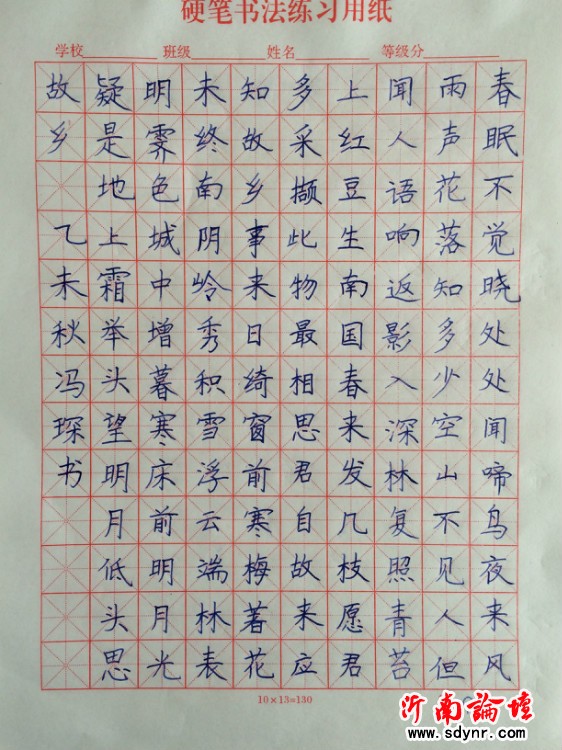 硬笔书法练习用纸
学校 班级 姓名 等级分
春眠不觉晓处处闻啼鸟夜来风
雨声花落知多少空山不见人但
闻人语响返影入深林复照青苔
上红豆生南国春来发几枝愿君
多采撷此物最相思君自故来应
知故乡事来日绮窗前寒梅著花
未终南阴岭秀积雪浮云端林表
明霁色城中增暮寒床前明月光
疑是地上霜举头望明月低头思
故乡 乙未秋冯琛书
10×13=130
沂南論壇
www.sdynr.com